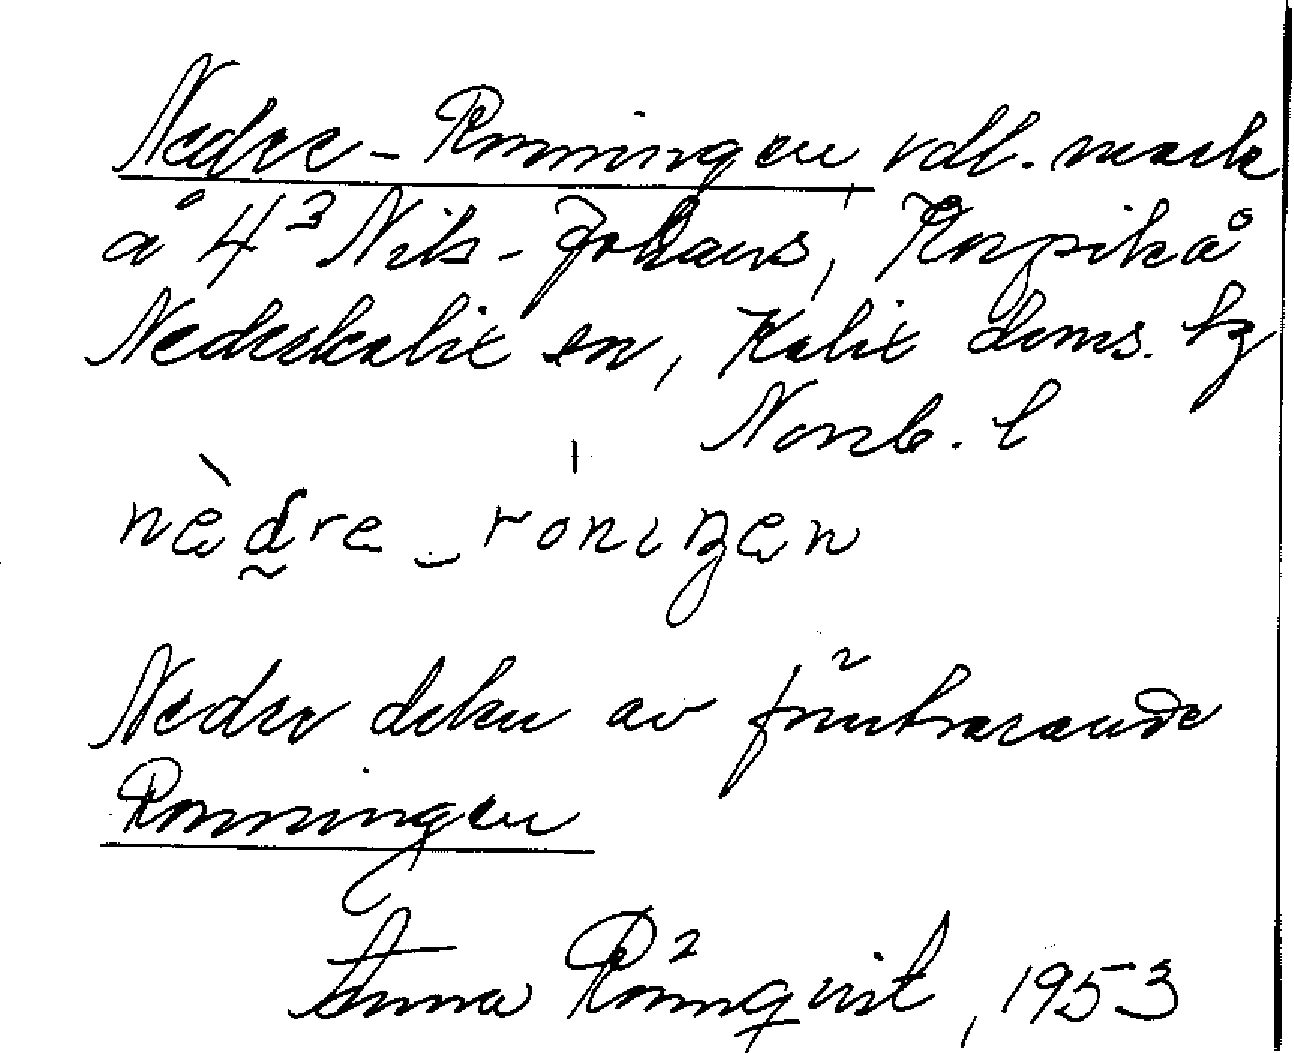 Nedre-Ronningen odl. mark
å 4³ Nils-Johans, Korpikå
Nederkalix sn, Kalix doms. hg
Norrb. l
nèdre_rónıŋen
Nedre delen av föreliggande
Ronningen
Anna Rönnqvist, 1953